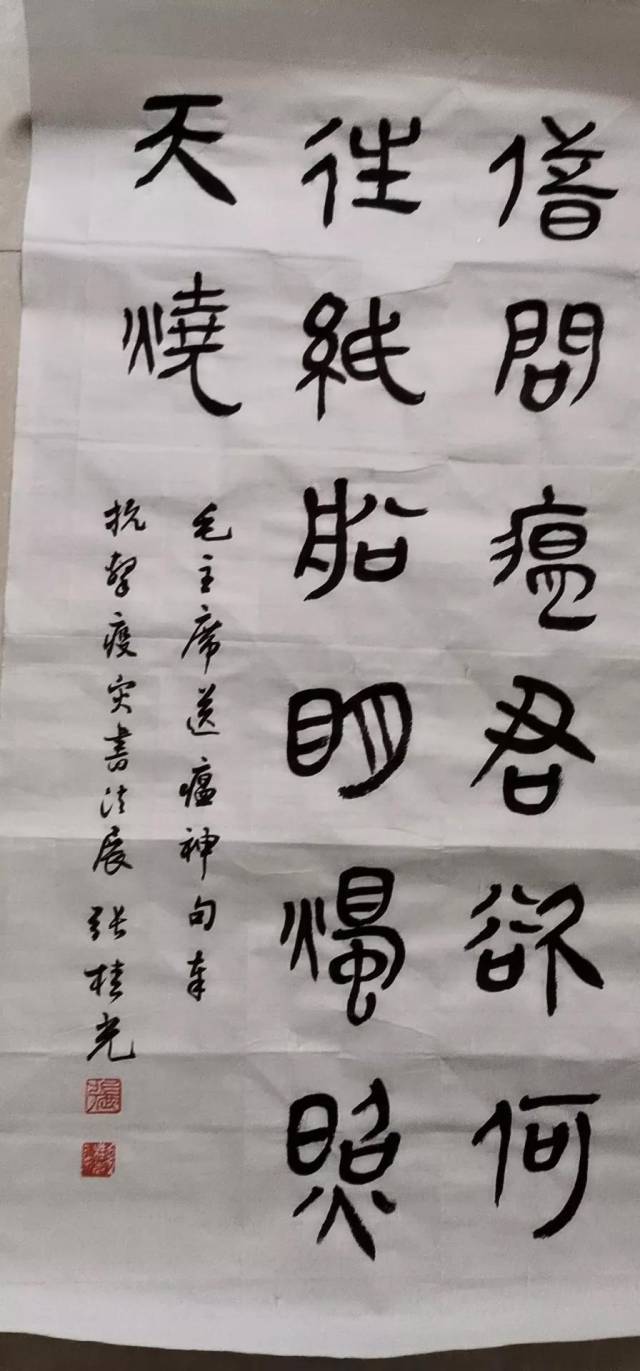 借問瘟君欲何
往紙船明燭照
天燒
毛主席送瘟神句奉
抗擊疫灾書法展 張桂光